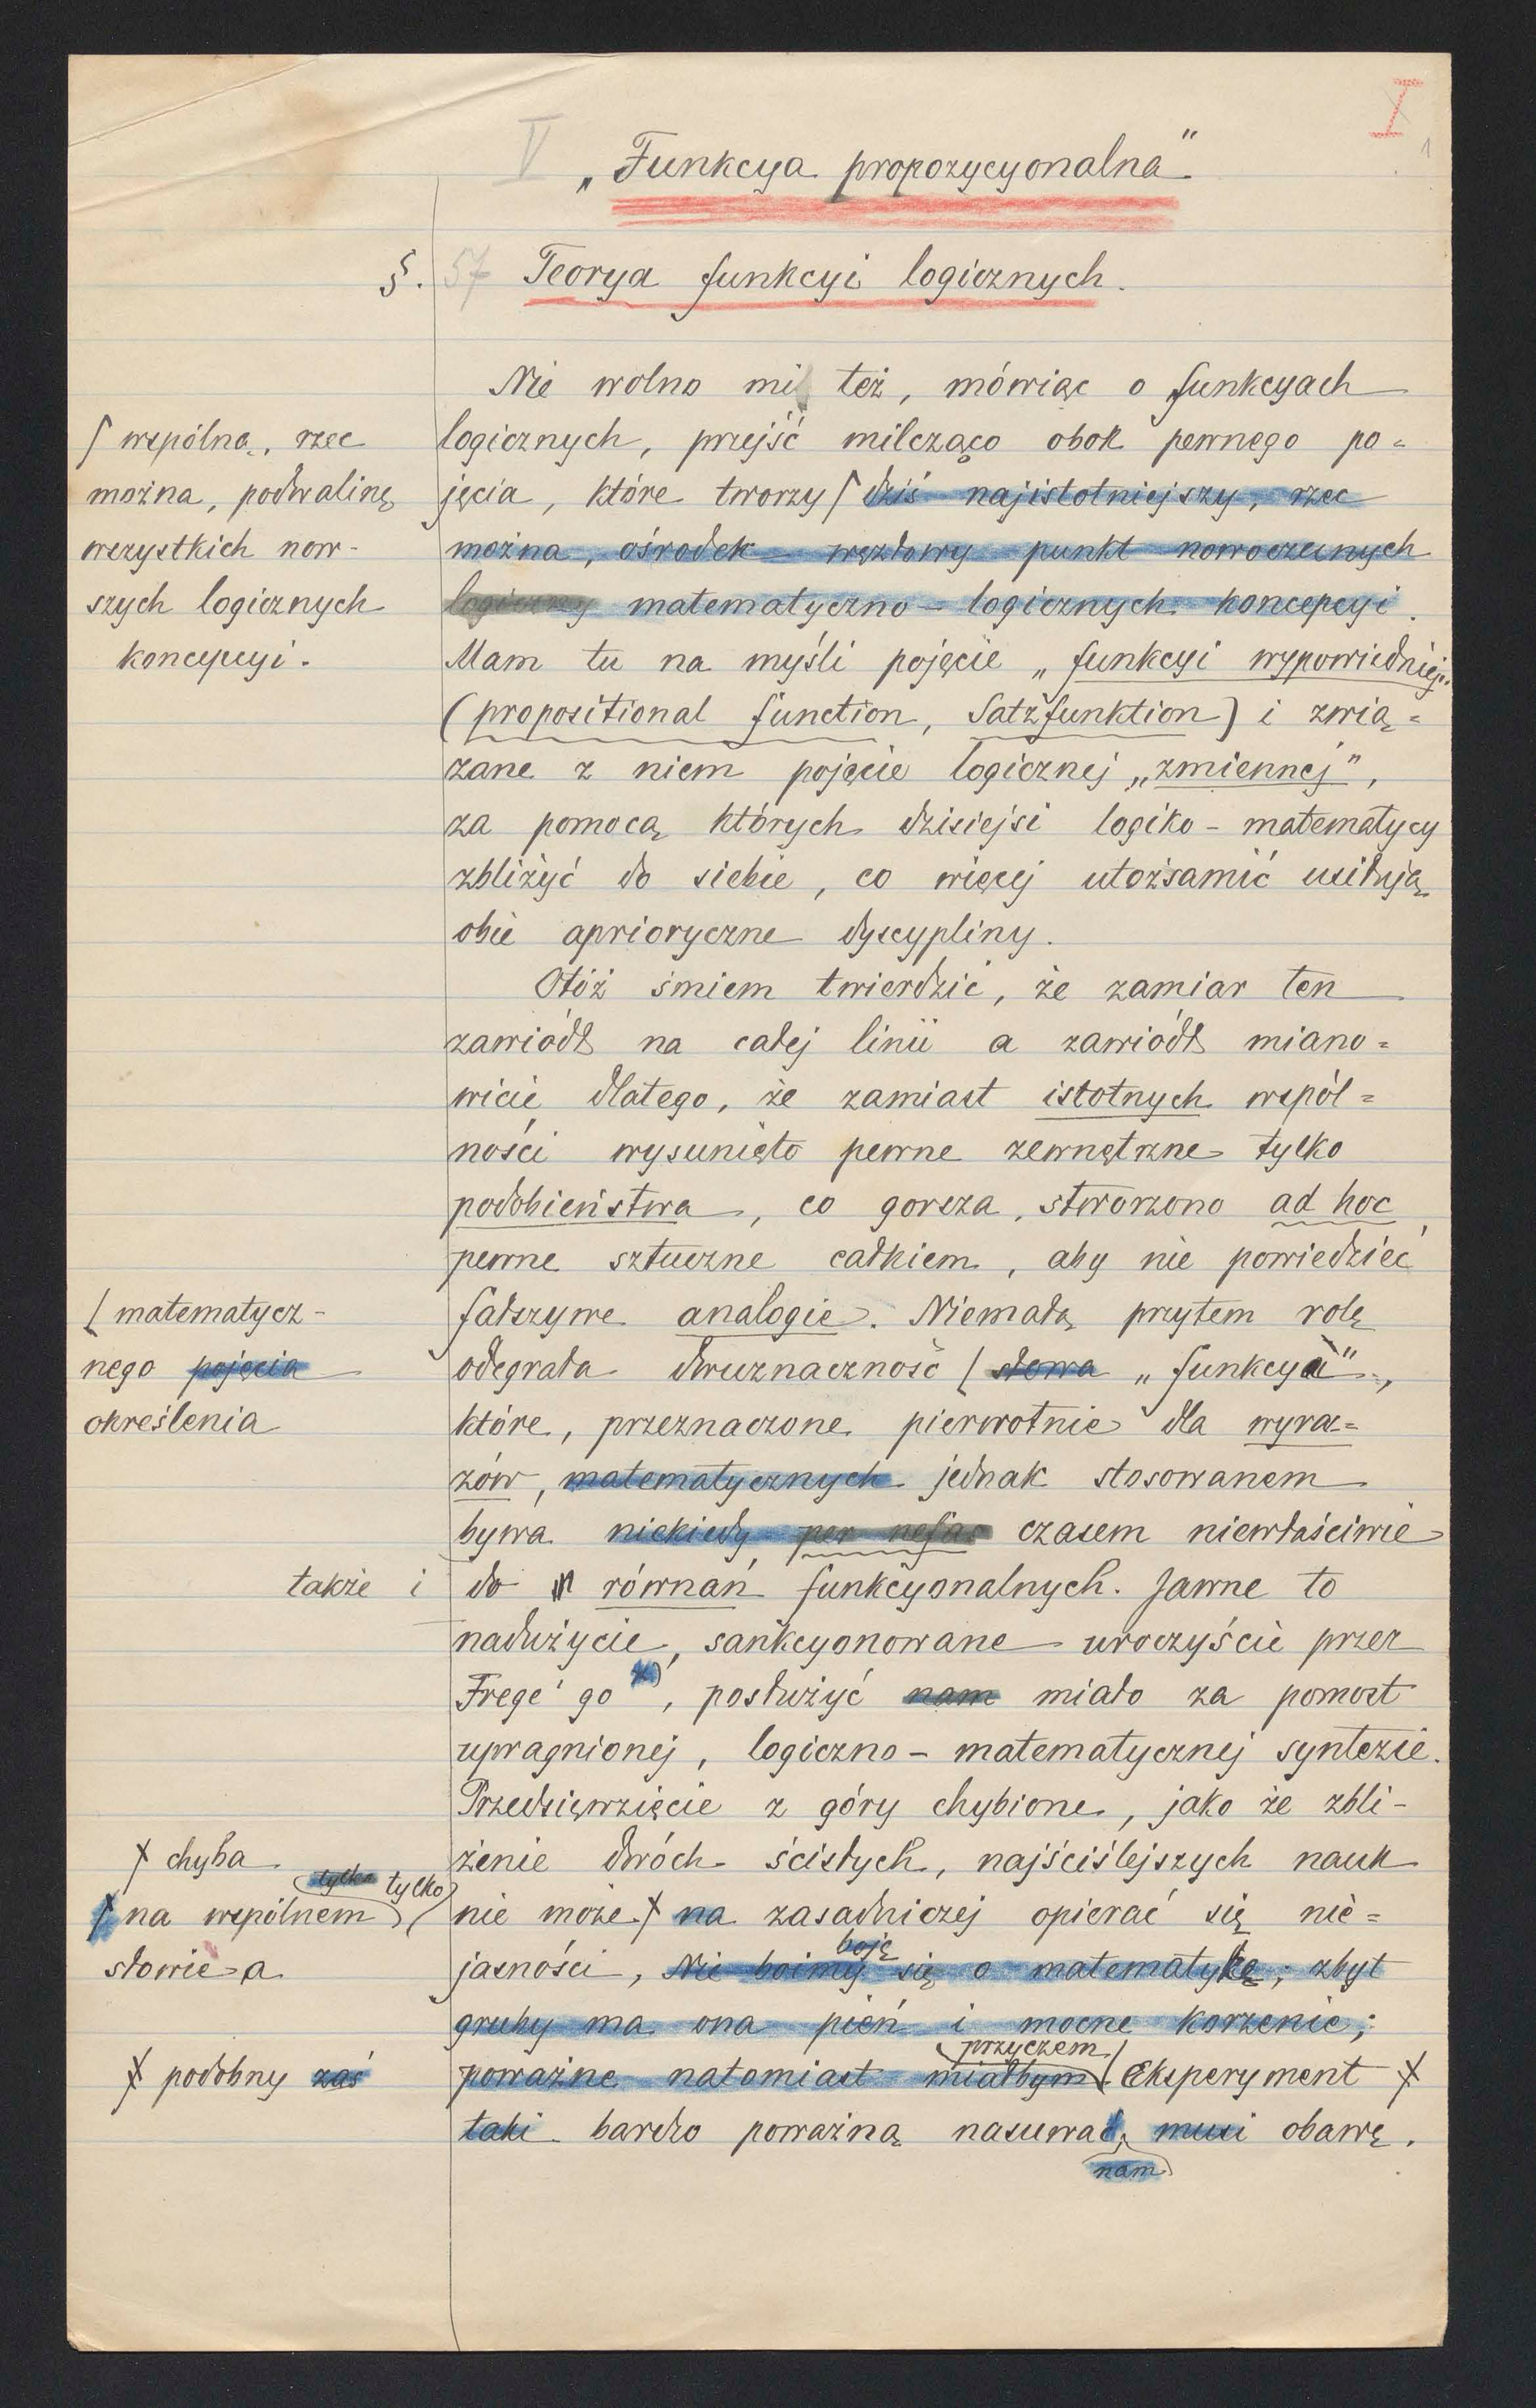 I
1
V „Funkcya propozycyonalna”
§. 57 Teorya funkcyi logicznych.
Nie wolno mi też, mówiąc o funkcyach
⌠ wspólną, rzec
logicznych, przejść milcząco obok pewnego po=
można, podwalinę
jęcia, które tworzy ⌠ dziś najistotniejszy, rzec
wszystkich now-
można, ośrodek węzłowy punkt nowoczesnych
szych logicznych
logiczny matematyczno-logicznych koncepcyi.
koncepcyi.
Mam tu na myśli pojęcie „funkcyi wypowiedniej”
(propositional function, Satzfunktion) i zwią=
zane z niem pojęcie logicznej „zmiennej”,
za pomocą których dzisiejsi logiko-matematycy
zbliżyć do siebie, co więcej utożsamić usiłują
obie aprioryczne dyscypliny.
Otóż śmiem twierdzić, że zamiar ten
zawiódł na całej linii a zawiódł miano=
wicie dlatego, że zamiast istotnych wspól=
ności wysunięto pewne zewnętrzne tylko
podobieństwa, co gorsza, stworzono ad hoc
pewne sztuczne całkiem, aby nie powiedzieć
⌊ matematycz-
fałszywe analogie. Niemałą przytem rolę
nego pojęcia
odegrała dwuznaczność ⌊ słowa „funkcya”,
określenia
które, przeznaczone pierwotnie dla wyra=
zów, matematycznych jednak stosowanem
bywa niekiedy per nefas czasem niewłaściwie
także i
do równań funkcyonalnych. Jawne to
nadużycie, sankcyonowane uroczyście przez
Frege'go x), posłużyć nam miało za pomost
upragnionej, logiczno-matematycznej syntezie.
Przedsięwzięcie z góry chybione, jako że zbli-
ɫ chyba
żenie dwóch ścisłych, najściślejszych nauk
tylko tylko
⌠ na wspólnem
nie może ɫ na zasadniczej opierać się nie=
słowie a
boję
jasności, Nie boimy się o matematykę; zbyt
gruby ma ona pień i mocne korzenie;
przyczem
ɫ podobny zaś
poważne natomiast miałbym Eksperyment ɫ
taki bardzo poważną nasuwać, musi obawę.
nam